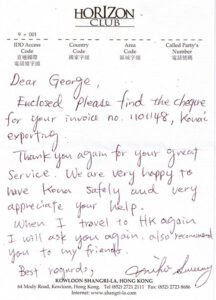 HORIZON
CLUB
9 + 001
IDD Access
Code
Country
Code
Area
Code
Called Party's
Number
直通國際
電話字頭
國家字頭
區域字頭
電話號碼
Dear George,
Enclosed Please find the cheque
for your invoice no. 1101148, Konai
exporting.
Thank you again for your great
Service. We are very happy to
have Kona Safely and very
appreciate your help.
When I travel to HK again
I will ask you again. also recommend
you to my friends.
Best regards,
KOWLOON SHANGRI-LA, HONG KONG
64 Mody Road, Kowloon, Hong Kong Tel (852) 2721 2111 Fax (852) 2723 8686
Internet: www.shangri-la.com